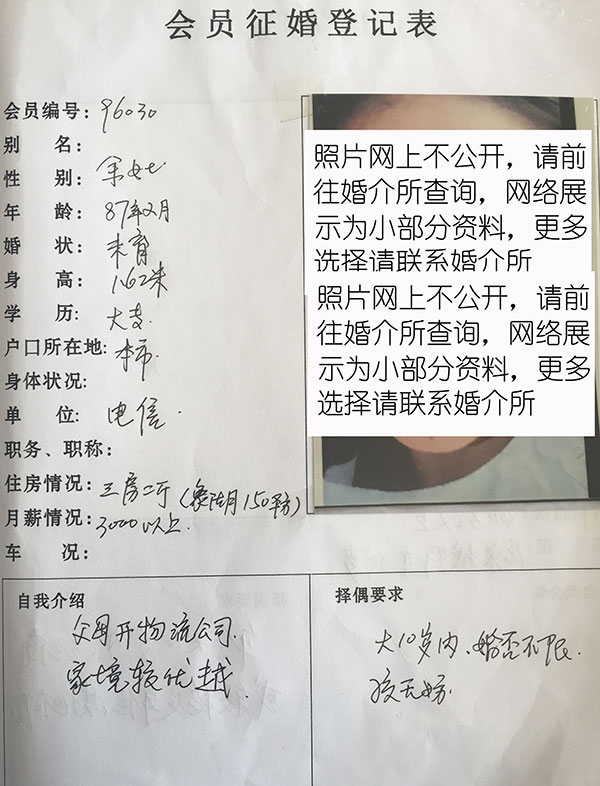 会员征婚登记表
会员编号：96030
别 名：
性 别：余女士
年 龄：87年2月
婚 状：未育
身 高：1.62米
学 历：大专
户口所在地：本市
身体状况：
单 位：电信
职务、职称：
住房情况：三房二厅(150平方)
月薪情况：3000以上
车 况：
照片网上不公开，请前
往婚介所查询，网络展
示为小部分资料，更多
选择请联系婚介所
照片网上不公开，请前
往婚介所查询，网络展
示为小部分资料，更多
选择请联系婚介所
自我介绍
父母开物流公司.
家境较优越.
择偶要求
大10岁内、婚否不限.
孩无妨.